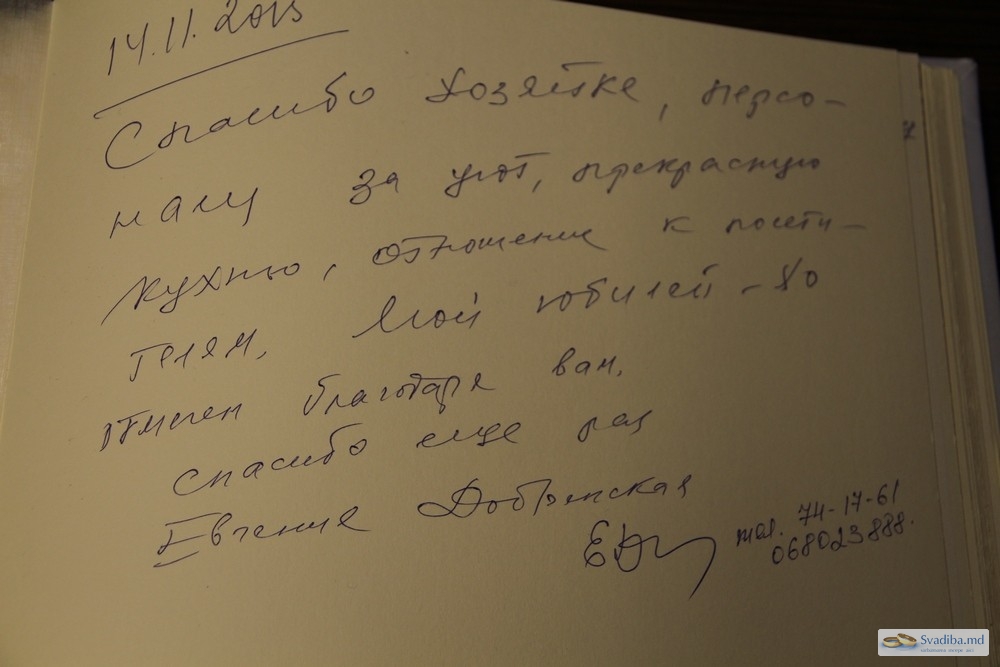 14.11.2015
Спасибо Хозяйке, персо-
налу за уют, прекрасную
кухню, отношение к посети-
телям. Мой юбилей - 80
отмечен благодаря вам.
Спасибо еще раз
Евгения
тел. 74-17-61
068023888.
Svadiba.md